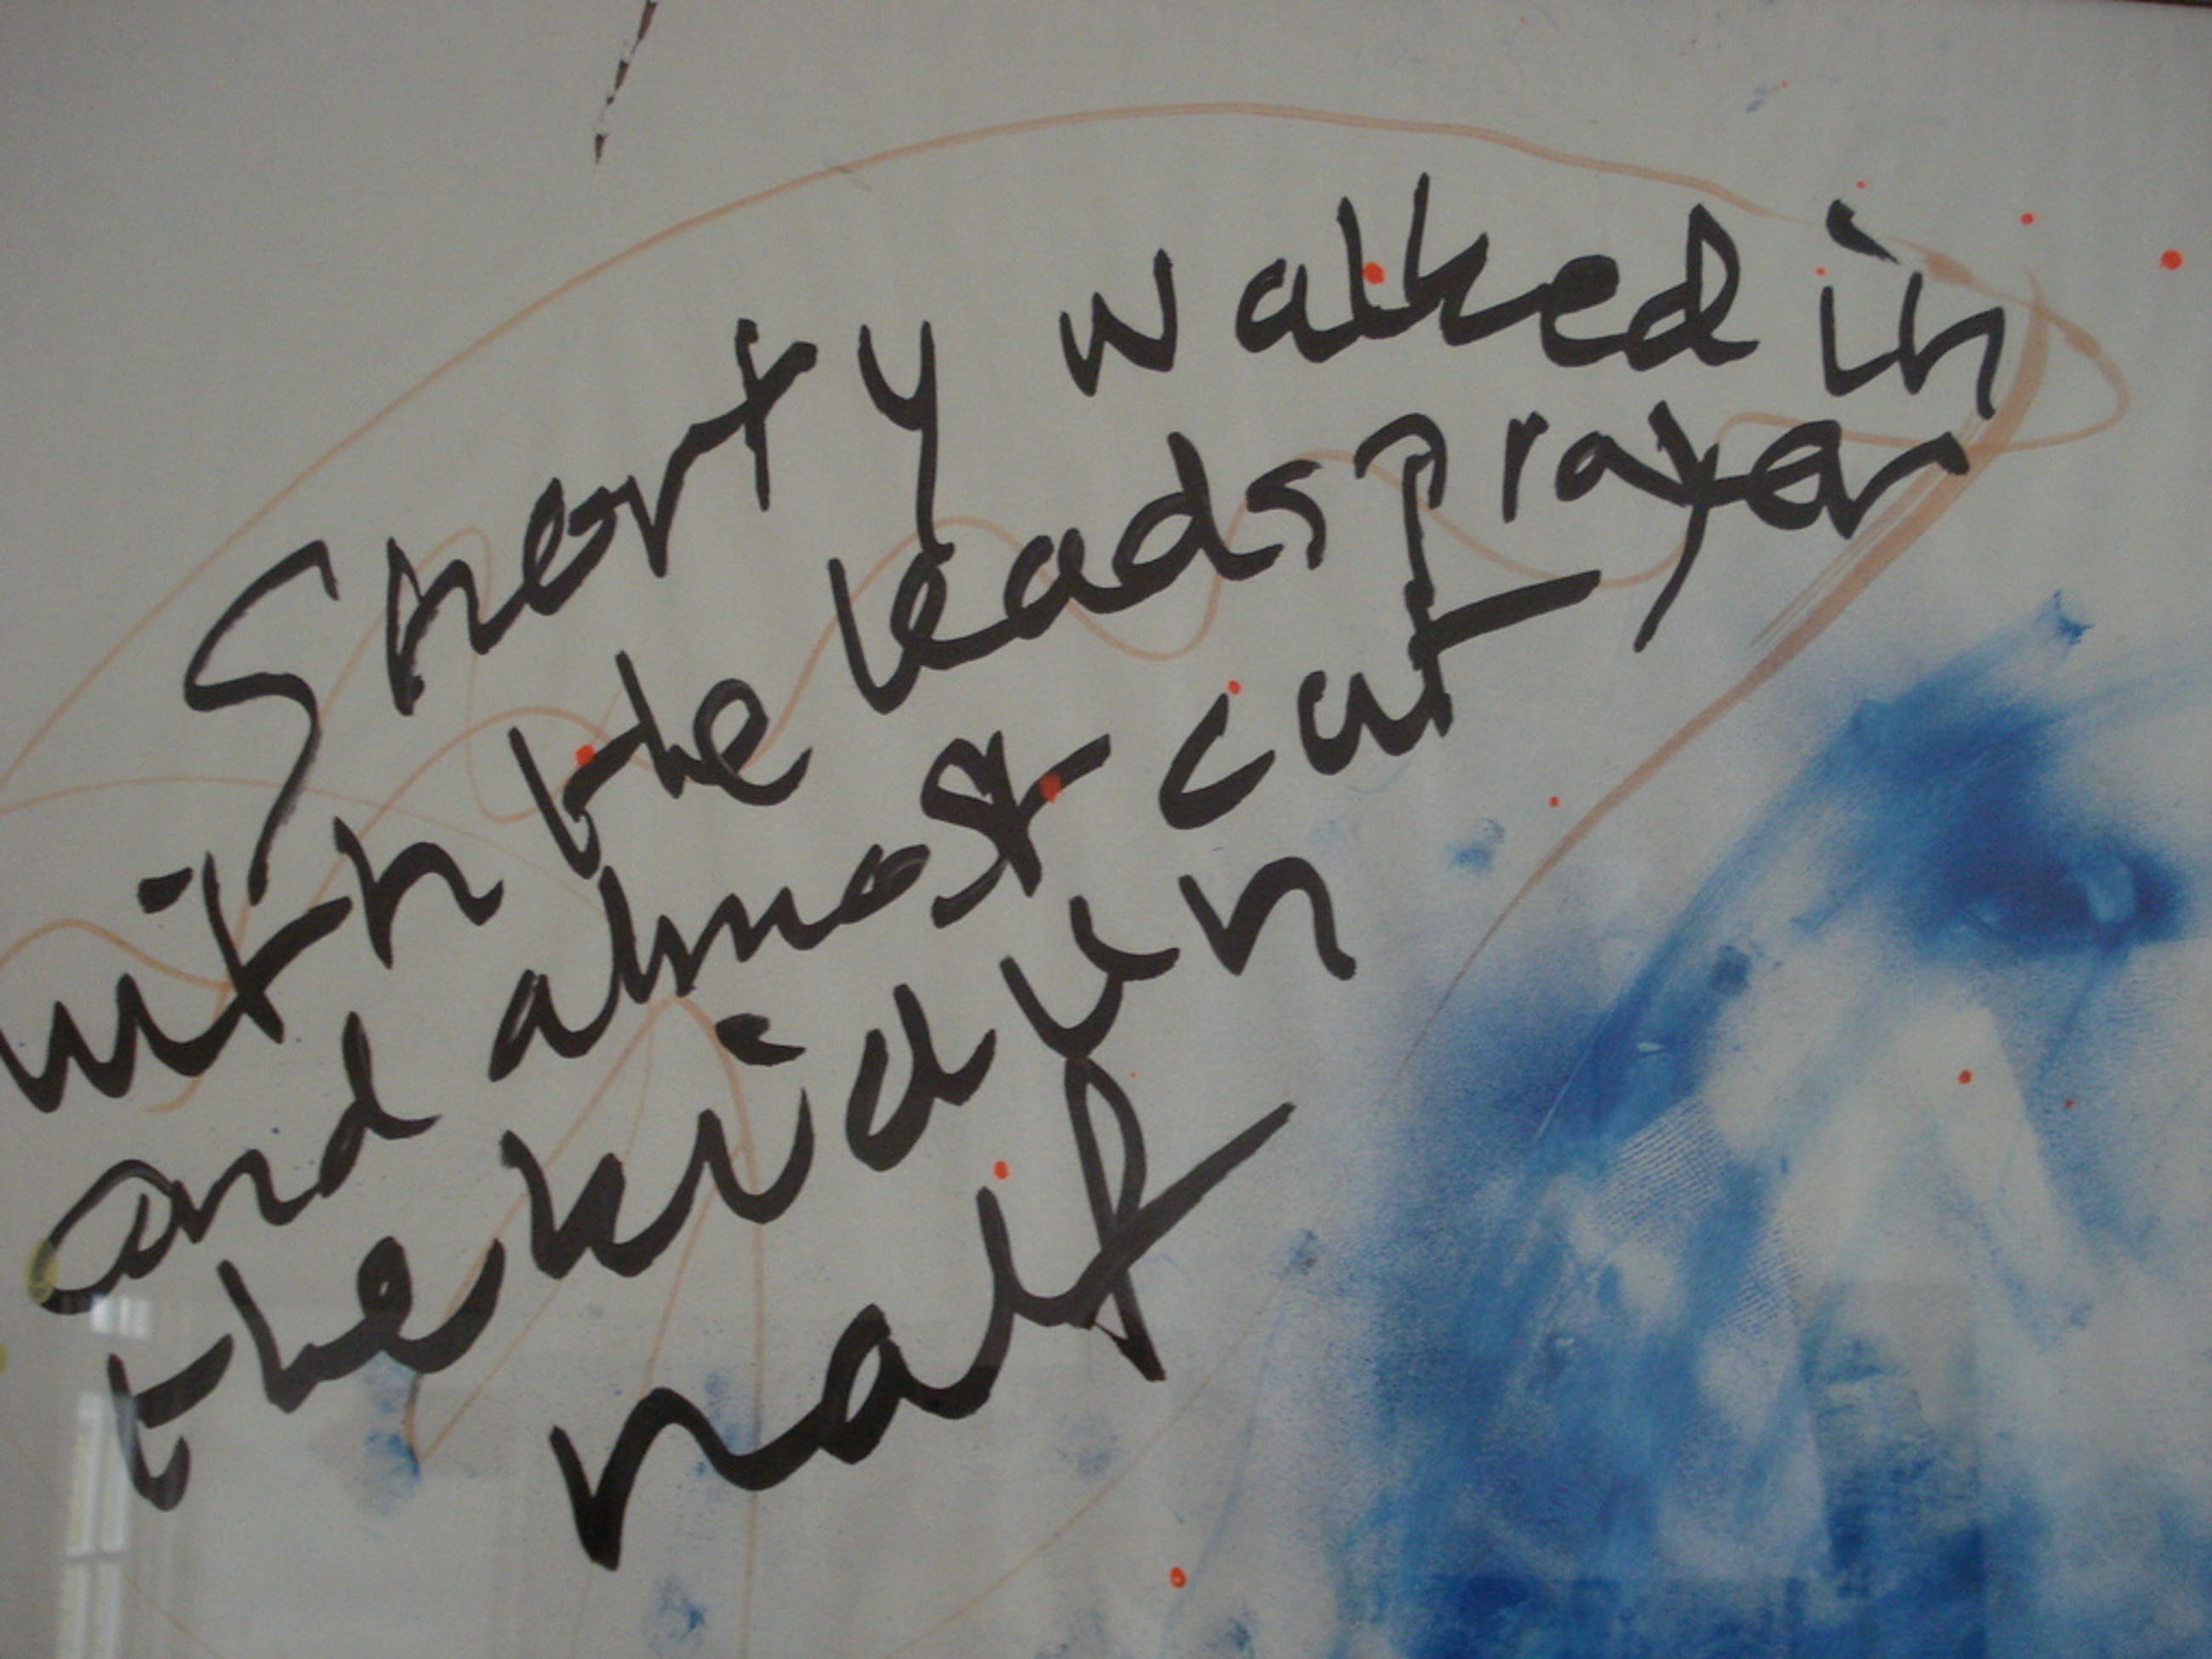 Shorty walked in
with the lead sprayer
and almost cut
the kid in
half